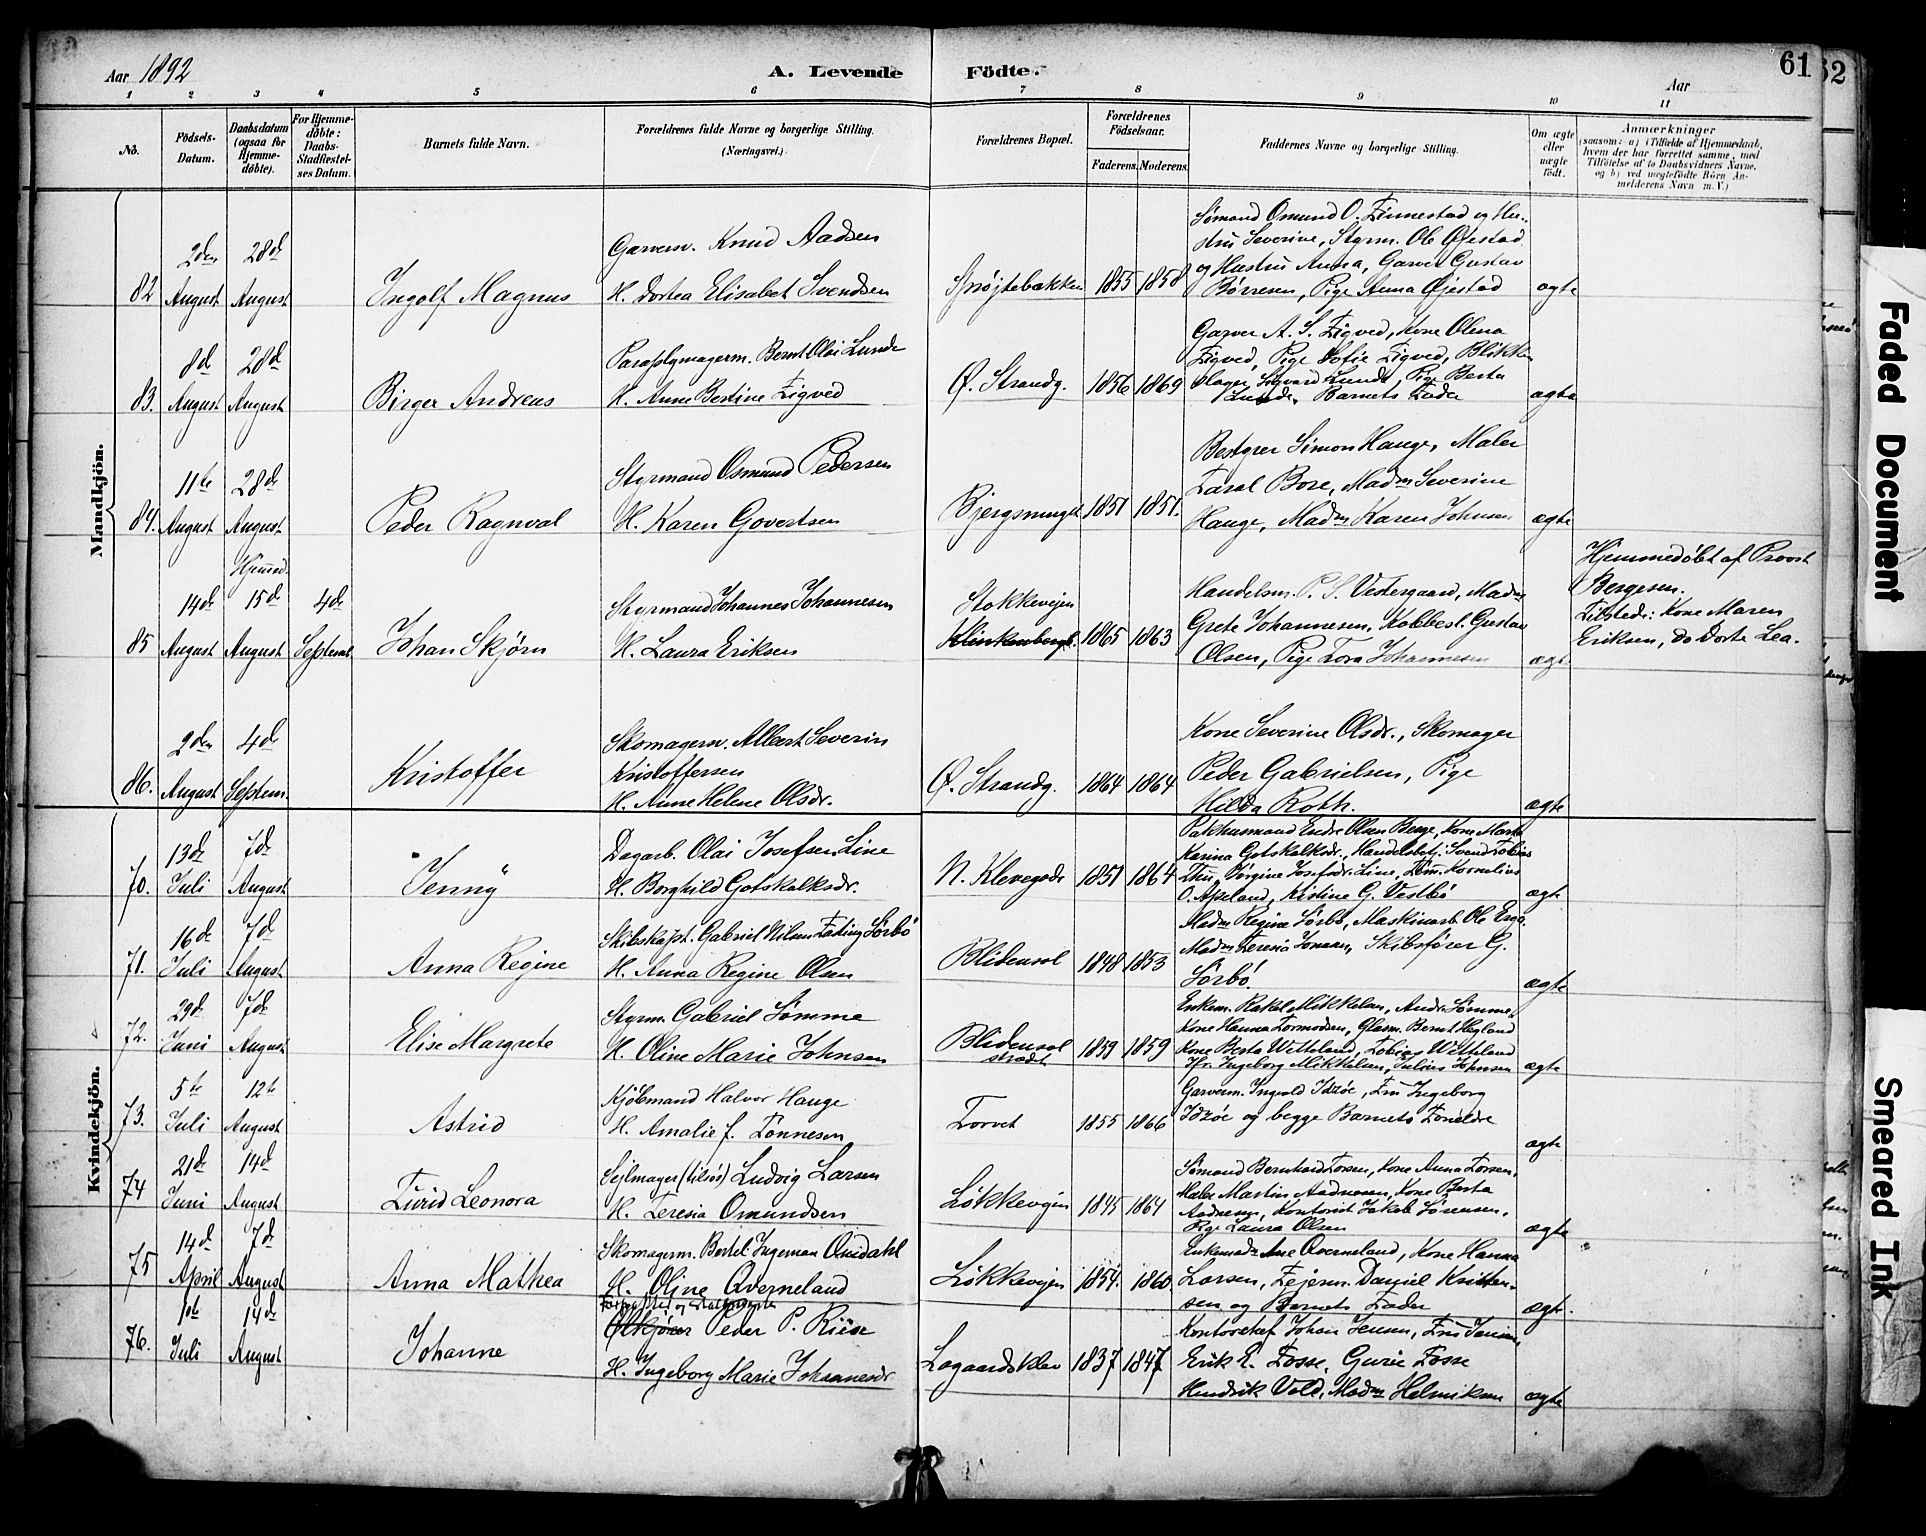 Aar 1892
A. Levende Födte.
Aar
61
62
1 2 3 4 5 6 7 8 9 10 11
No.
Födsels-Datum.
Daabsdatum (ogsaa for Hjemme-döbte).
For Hjemme-döbte: Daabs-Stadfæstel-ses Datum.
Barnets fulde Navn.
Forældrenes fulde Navne og borgerlige Stilling. (Næringsvei.)
Forældrenes Bopæl.
Forældrenes Födselsaar.
Faderens. Moderens.
Faddernes Navne og borgerlige Stilling.
Om ægte eller uægte födt.
Anmærkninger
(saasom: a) i Tilfælde af Hjemmedaab,
hvem der har forrettet samme, med
Tilföielse af to Daabsvidners Navne.
og b) ved uægtefödte Börn An-
melderens Navn m. V.)
Mandkjön.
82 2den August 28d August
Ingolf Magnus
Garversv. Knud Aadsen
H. Dortea Elisabet Svendsen
Sprøjtebakken 1855 1858
Sømand Omund O. Finnestad og Hu-
stru Severine, Styrm. Ole Øiestad
og Hustru Anna, Garver Gustav
Børresen, Pige Anna Øjestad
ægte
83. 8d August 28d August
Birger Andreas
Paraplymagerm. Bernt Olai Lunde
H. Anne Bertine Figved
Ø. Strandg. 1856 1869
Garver A. S. Figved, Kone Olena
Figved, Pige Sofie Figved, Blikken
slager Sigvard Lunde, Pige Berta
Lunde, Barnets Fader
ægte
84. 11te August 28d August
Peder Ragnval
Styrmand Osmund Pedersen
H. Karen Govertsen
Bjergsmuget 1851 1851.
Bestyrer Simon Hauge, Maler
Taral Bore, Madm Severine
Hauge, Madm Karen Johnsen
ægte
85 14d August Hjemmed. 15d August 4d Septemb.
Johan Skjörn
Styrmand Johannes Johannesen
H. Laura Eriksen
Stokkevejen
Klinkenbergb. 1865 1863
Handelsm. P. S. Vestergaard, Madm
Grete Johannesen, Kobbesl. Gustav
Olsen, Pige Tora Johannesen
ægte
Hjemmedøbt af Provst
Bergesen.
Tilsted: Kone Maren
Eriksen, Do Dorte Lea.
86. 2den August 4d Septem.
Kristoffer
Skomagersv. Albert Severin
Kristoffersen
H. Anne Helene Olsdr.
Ø. Strandg. 1864 1864
Kone Severine Olsdr., Skomager
Peder Gabrielsen, Pige
Hilda Roth.
ægte
Kvindekjön.
70. 13d Juli 7d August
Jenny
Dagarb. Olai Josefsen Line
H. Borghild Gotskalksdr.
N. Klevegade 1851 1864
Pakhusmand Endre Olsen Berge, Kone Marta
Karina Gotskalksdr., Handelsbetj. Svend Tobias
Jörgine Josefsdr. Line, Kornelius
O. Apeland, Kistine G. Vestbö
ægte
71. 16d Juli 7d August
Anna Regine
Skibskapt. Gabriel Nilsen Fading Sörbö
H. Anna Regine Olsen
Blidensol 1848 1853
Madm Regine Sörbö, Maskinarb. Ole Erga.
Madm Teresia Skibsförer G.
Sörbö.
ægte
72. 29d Juni 7d August
Elise Margrete
Styrm. Gabriel Sömme
H. Oline Marie Johnsen
Blidensol
strædt 1859 1859
Enkem. Rakel Mikkelsen, Andr. Sömme,
Kone Hanna Tormodsen, Glasm. Bernt Hegland
Kone Berta Wetteland, Tobias Wetteland
Jfr. Ingeborg Mikkelsen, Julius Johnsen
ægte
73. 5te Juli 12te August
Astrid
Kjöbmand Halvor Hauge
H. Amalie f. Tönnesen
Torvet 1855 1866
Garverm. Ingvald Idsöe, Fru Ingeborg
Idsöe og begge Barnets Forældre
ægte
74 21d Juni 14d August
Turid Leonora
Sejlmager (tilsös) Ludvig Larsen
H. Teresia Omundsen
Lökkevejen 1845 1864
Sömand Bernhard Torsen, Kone Anna Torsen,
Maler Martin Aadnesen, Kone Berta
Aadnesen, Kontorist Jakob Sörensen,
Pige Laura Olsen
ægte
75 14d April 7d August
Anna Mathea
Skomagerm. Bertel Ingeman Omdahl
H. Oline Qverneland
Lökkevejen 1854. 1860.
Enkemadm Ane Qverneland, Kone Hanna
Larsen, Fejerm. Daniel Kristen-
sen og Barnets Fader
ægte.
76. 1ste Juli 14d August
Johanne
Peder P. Riise
H. Ingeborg Marie Johannesdr
Lagaardsklev 1837 1847
Kontorchef Johan Jensen, Fru Jensen,
Erik E. Fosse, Gurie Fosse
Hendrik Vold, Madm Helmiksen
ægte
Faded Document
Smeared Ink